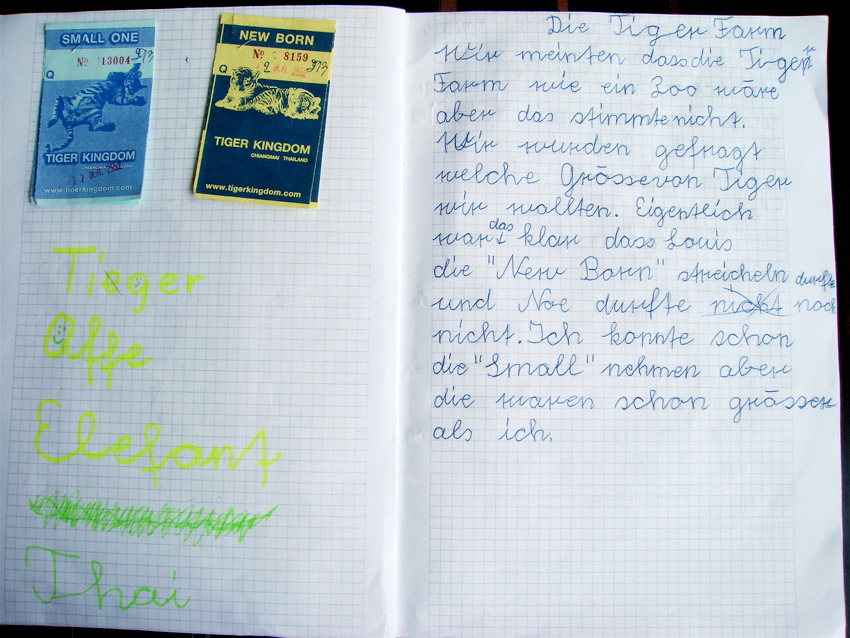 SMALL ONE
Nº 13004
273
Q
TIGER KINGDOM
CHIANGMAI THAILAND
www.tigerkingdom.com
NEW BORN
Nº 8159
273
Q
TIGER KINGDOM
CHIANGMAI THAILAND
www.tigerkingdom.com
Tieger
Affe
Elefant
Thai
Die Tiger Farm
Wir meinten dass die Tiger
Farm wie ein Zoo wäre
aber das stimmte nicht.
Wir wurden gefragt
welche Grösse von Tiger
wir wollten. Eigentlich
war das klar dass Louis
die "New Born" streicheln durfte
und Noe durfte nicht noch
nicht. Ich konnte schon
die "Small" nehmen aber
die waren schon grösser
als ich.